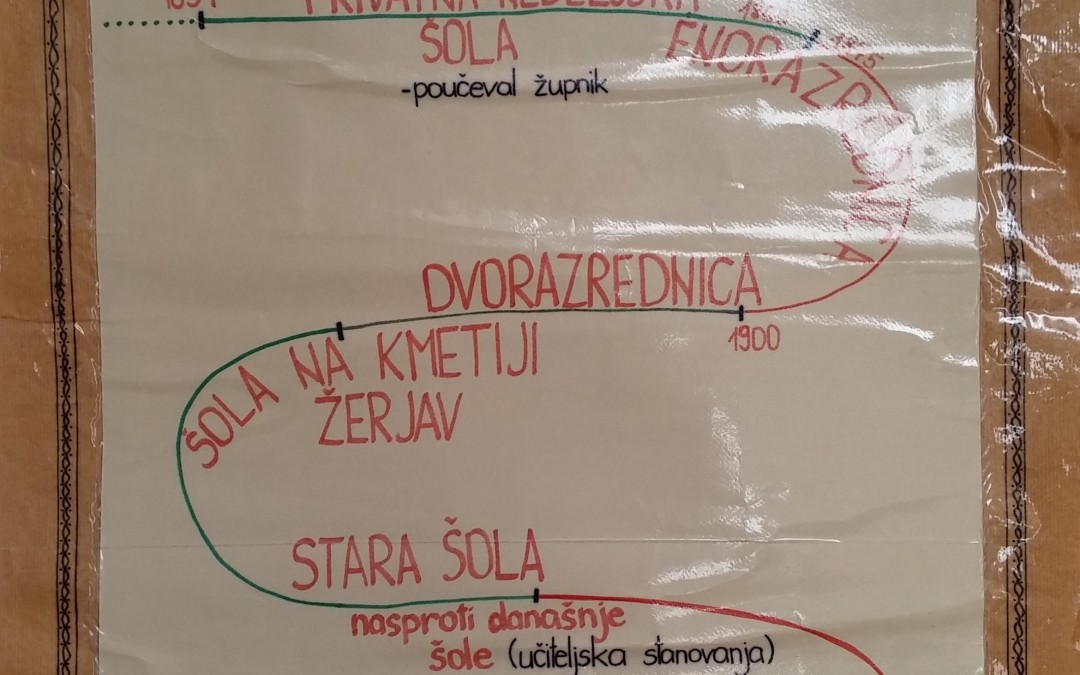 ŠOLA
-poučeval župnik
ENORAZREDNICA
DVORAZREDNICA
1900
ŠOLA NA KMETIJI
ŽERJAV
STARA ŠOLA
nasproti današnje
šole (učiteljska stanovanja)